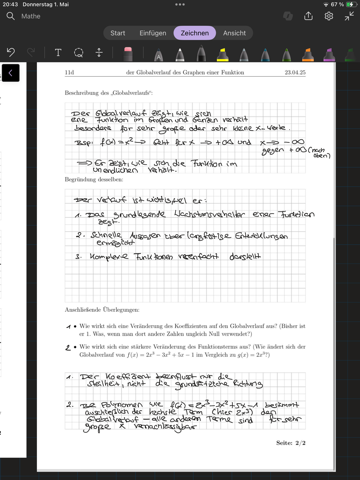 20:43 Donnerstag 1. Mai
67 %
Mathe
Start Einfügen Zeichnen Ansicht
11d der Globalverlauf des Graphen einer Funktion 23.04.25
Beschreibung des „Globalverlaufs“:
Der Globalverlauf zeigt, wie sich
eine Funktion im Großen und Ganzen verhält
besonders für sehr große oder sehr kleine x-Werte.
Bsp: f(x) = x² → geht für x → +∞ und x → -∞
gegen +∞ (nach
oben)
⇒ Er zeigt, wie sich die Funktion im
unendlichen verhält.
Begründung desselben:
Der Verlauf ist wichtig, weil er:
1. Das grundlegende Wachstumsverhalten einer Funktion
zeigt.
2. Schnelle Aussagen über langfristige Entwicklungen
ermöglicht
3. Komplexe Funktionen vereinfacht darstellt
Anschließende Überlegungen:
1 • Wie wirkt sich eine Veränderung des Koeffizienten auf den Globalverlauf aus? (Bisher ist
er 1. Was, wenn man dort andere Zahlen ungleich Null verwendet?)
2 • Wie wirkt sich eine stärkere Veränderung des Funktionsterms aus? (Wie ändert sich der
Globalverlauf von f(x) = 2x³ − 3x² + 5x − 1 im Vergleich zu g(x) = 2x³?)
1. Der Koeffizient beeinflusst nur die
Steilheit, nicht die grundsätzliche Richtung
2. Bei Polynomen wie f(x) = 2x³-3x²+5x-1 bestimmt
ausschließlich der höchste Term (hier 2x³) den
Globalverlauf – alle anderen Terme sind für sehr
große x vernachlässigbar
Seite: 2/2